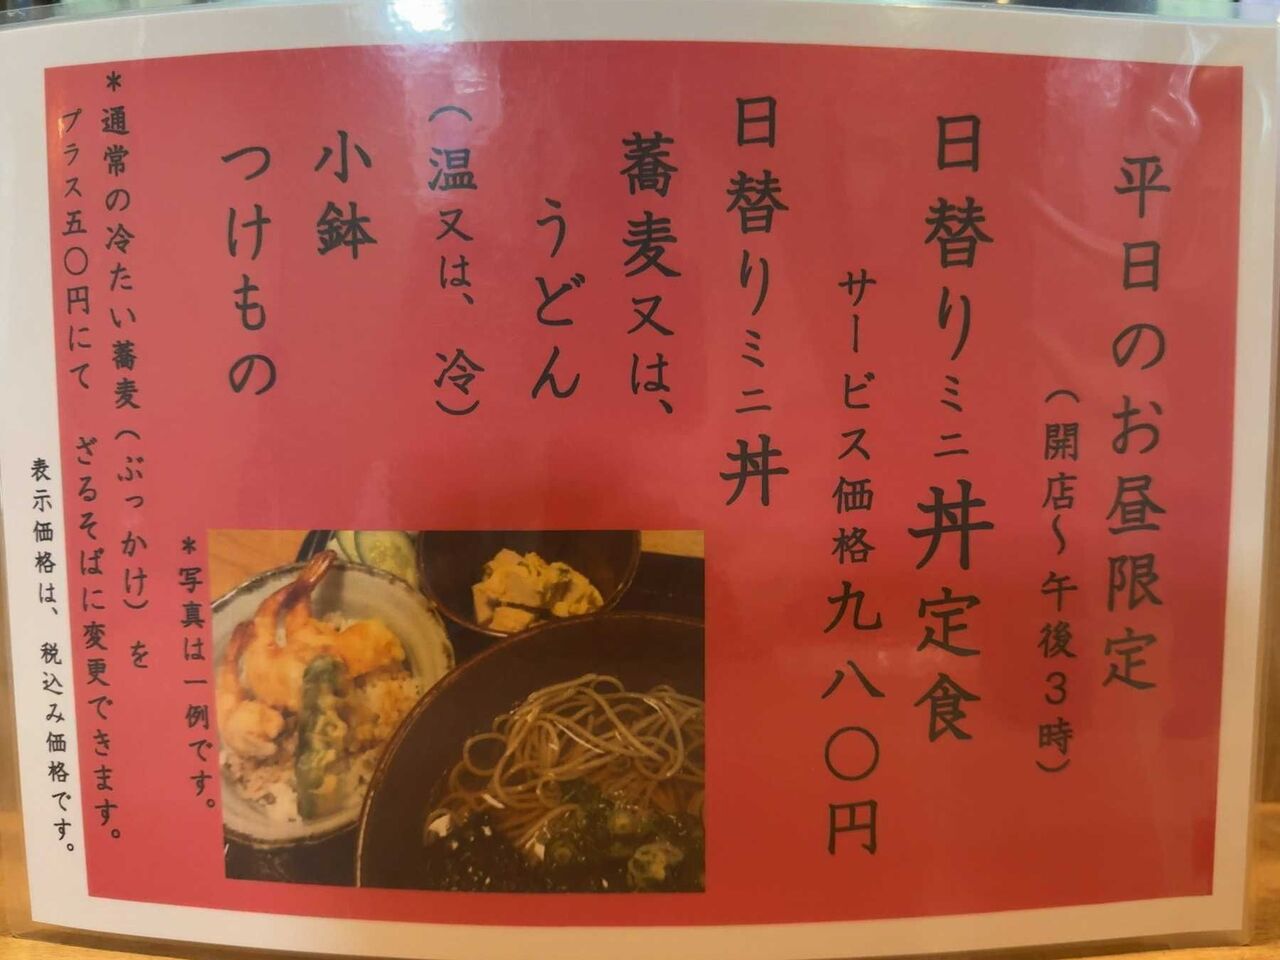 平日のお昼限定
（開店～午後３時）
日替りミニ丼定食
サービス価格九八〇円
日替りミニ丼
蕎麦又は、
うどん
（温又は、冷）
小鉢
つけもの
＊写真は一例です。
＊通常の冷たい蕎麦（ぶっかけ）を
プラス五〇円にて ざるそばに変更できます。
表示価格は、税込み価格です。